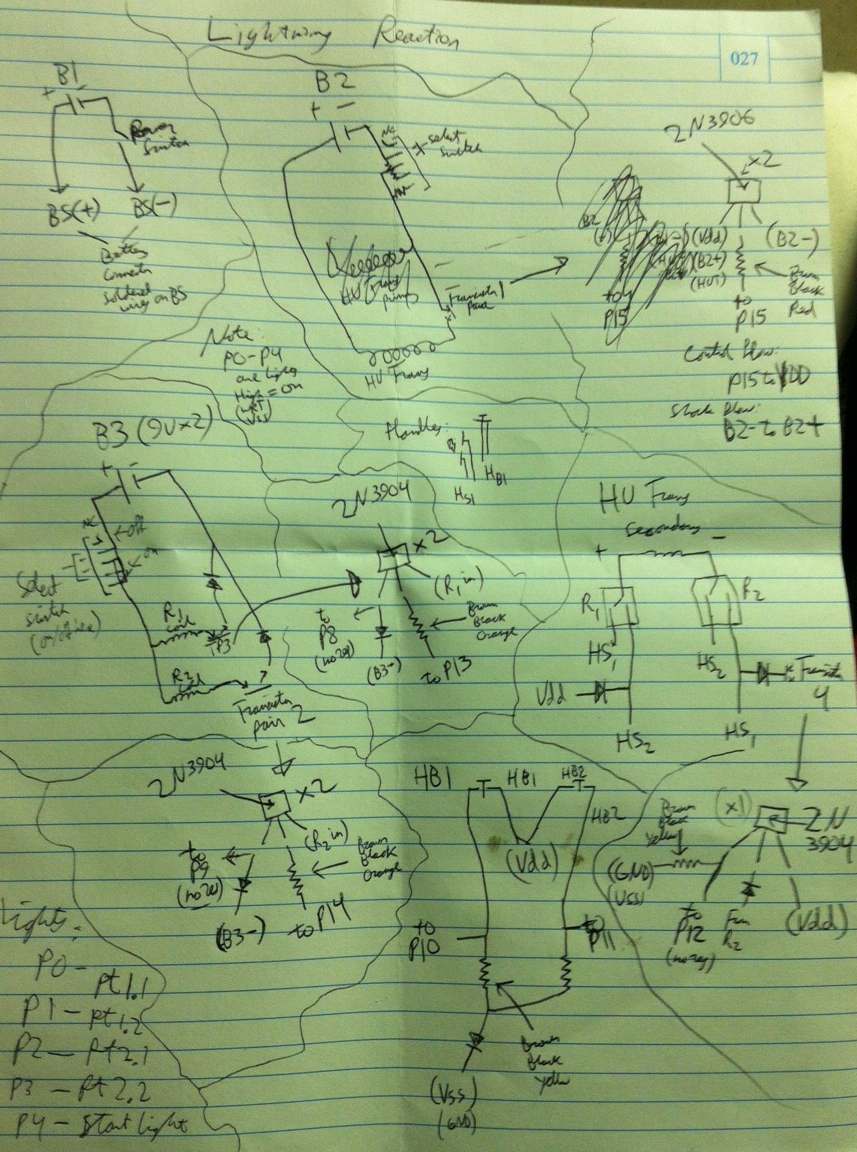 Lightning Reaction
027
B1
+ -
Power
Switch
BS(+) BS(-)
Battery
Connector
Soldered
wires on BS
B2
+ -
NC
select
switch
HV
Transistor
pair 1
HV Trans
2N3906
x2
(Vdd)
(B2+)
(HVT)
(B2-)
to
P15
Brown
Black
Red
B2
to
P15
Control Flow:
P15 to VDD
Shock Flow:
B2- to B2+
Note:
P0-P4
are lights
High = on
(WRT)
VSS
Handles:
HS1
HB1
B3 (9V x2)
+ -
NC
off
on
Select
switch
R1
coil
P3
R2
Transistor
pair 2
2N3904
x2
(R1 in)
to
P8
(no res)
(B3-)
to P13
Brown
Black
Orange
HV Trans
Secondary
+ -
R1
R2
HS1
HS2
Vdd
HS2
HS1
to Transistor
4
2N3904
x2
(R2 in)
to
P9
(no res)
(B3-)
to P14
Brown
Black
Orange
HB1 HB1 HB2
HB2
(Vdd)
to
P10
to
P11
Brown
Black
Yellow
(VSS)
(GND)
Brown
Black
Yellow
(x1)
2N
3904
(GND)
(VSS)
to
P12
(no res)
From
R2
(Vdd)
Lights:
P0 - Pt1.1
P1 - Pt1.2
P2 - Pt2.1
P3 - Pt2.2
P4 - Start light